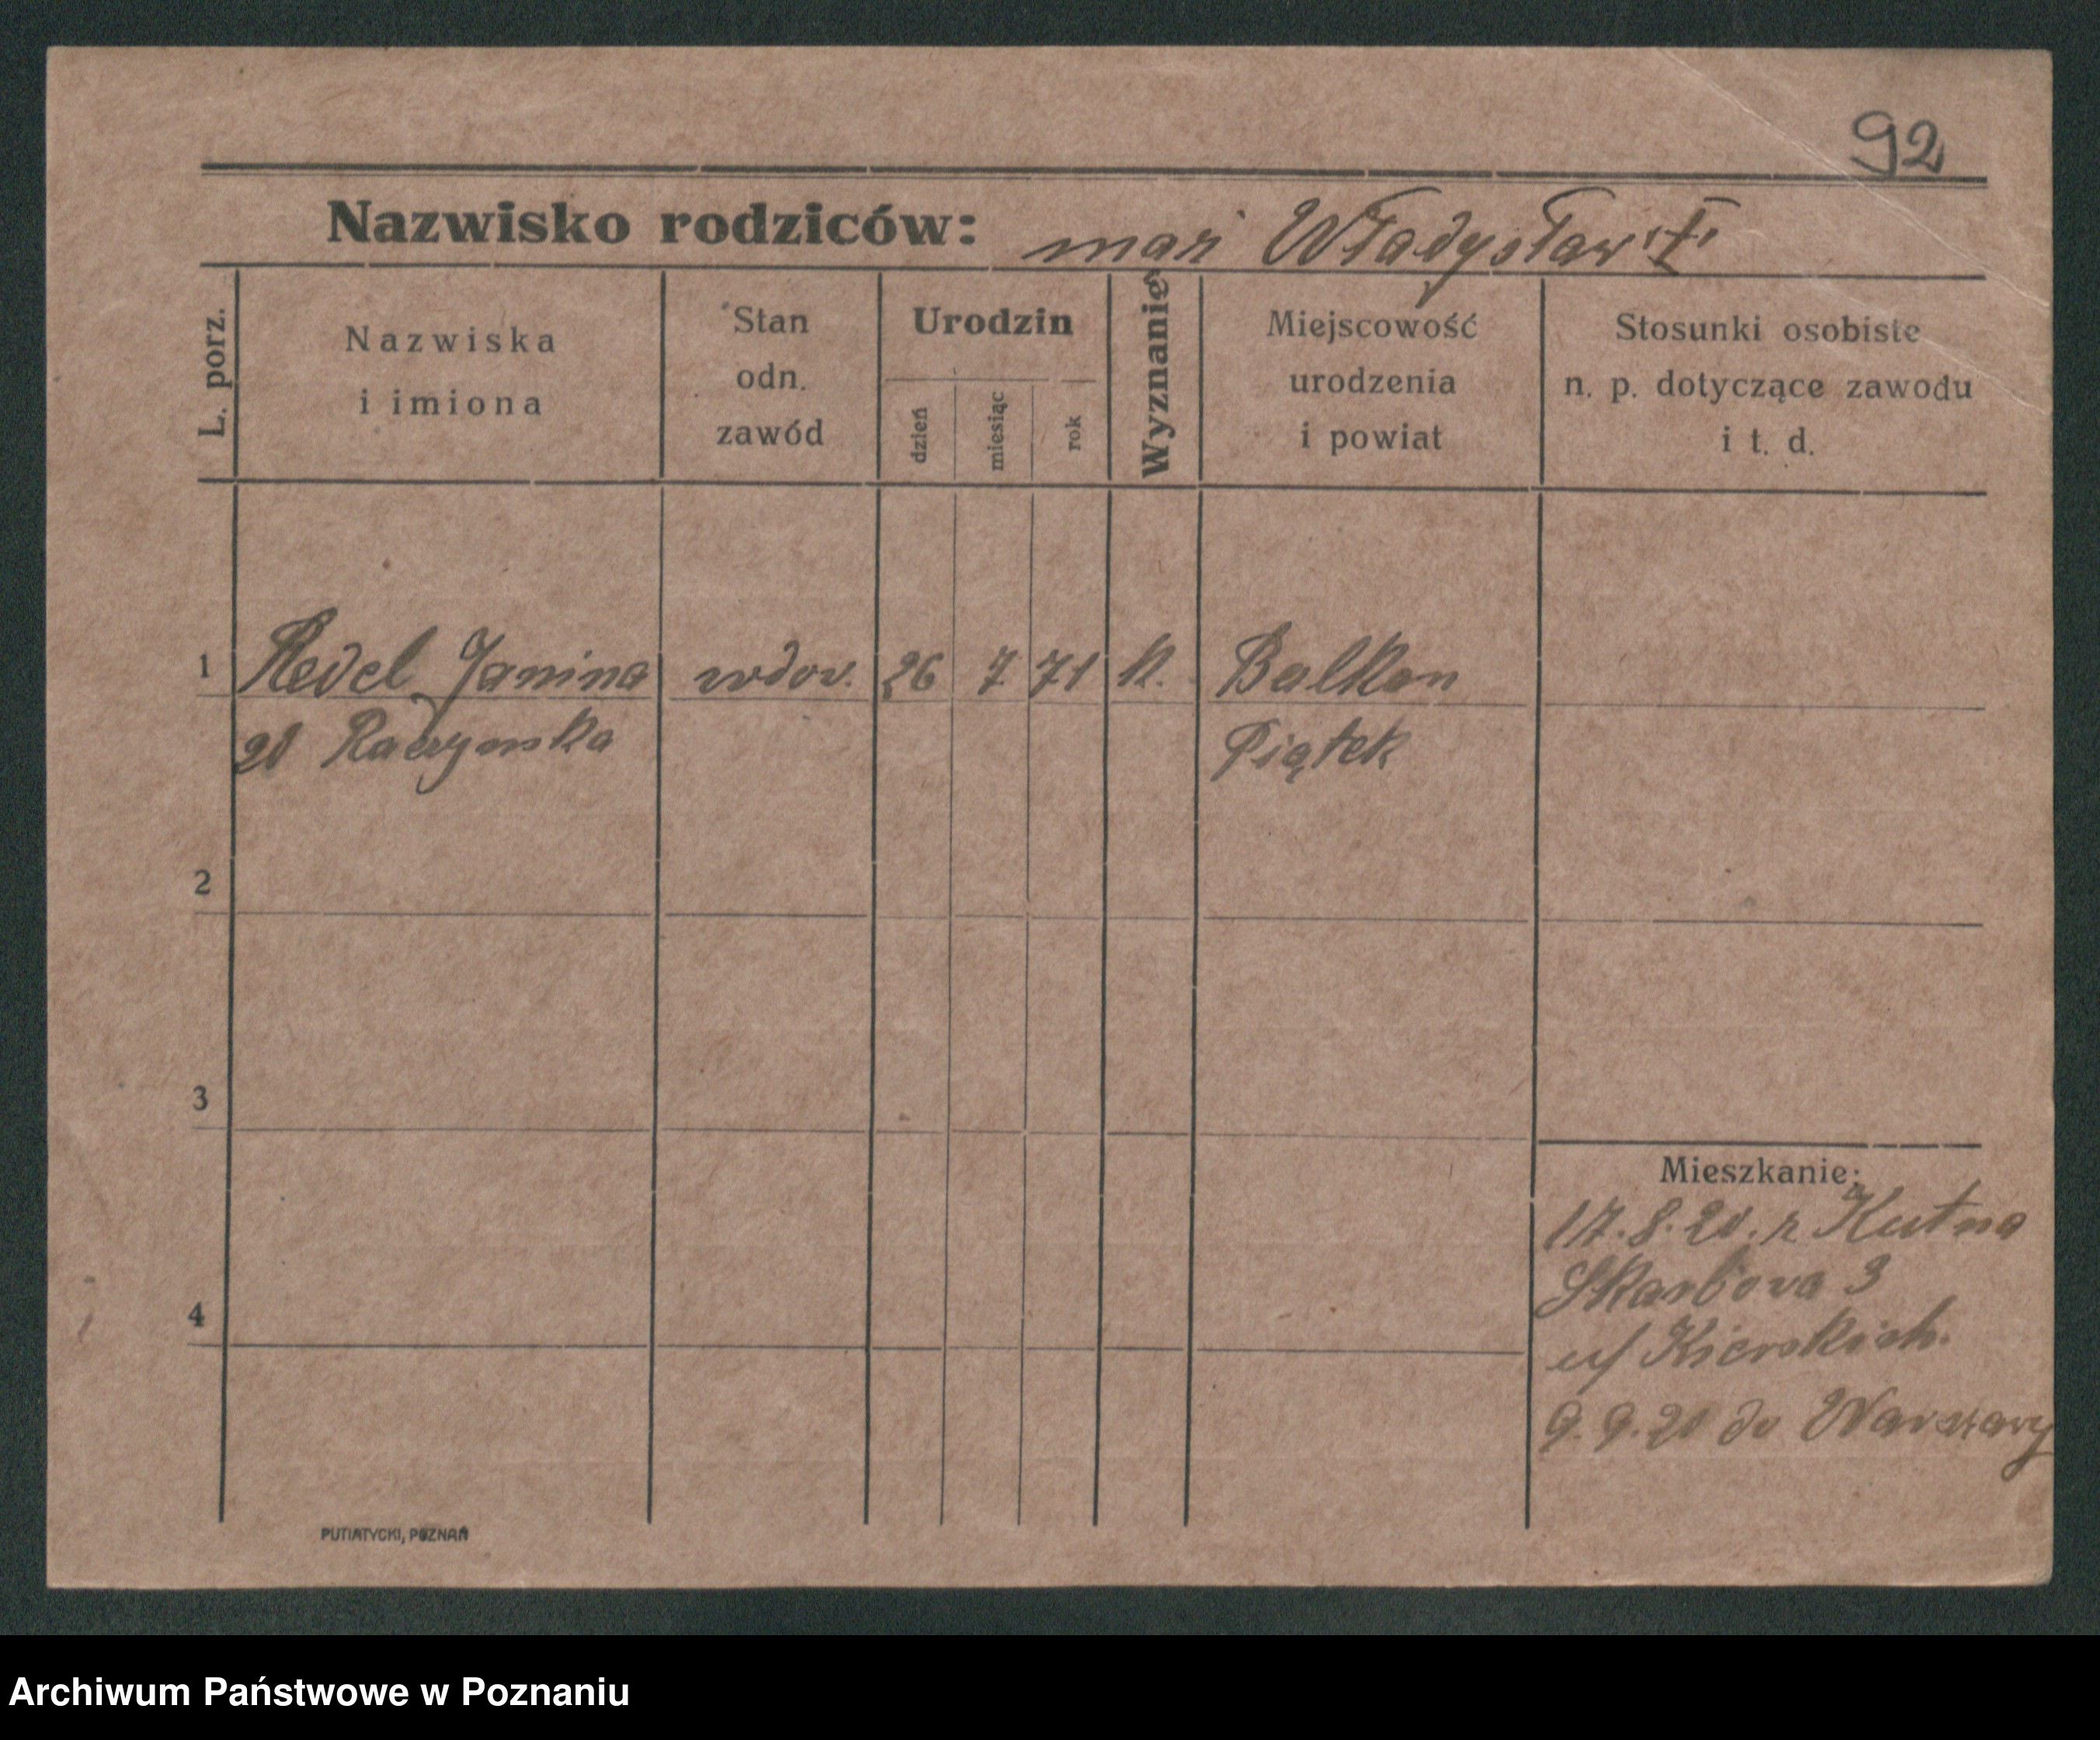 92
Nazwisko rodziców: mąż Władysław †
L. porz.
Nazwiska
i imiona
Stan
odn.
zawód
Urodzin
dzień
miesiąc
rok
Wyznanie
Miejscowość
urodzenia
i powiat
Stosunki osobiste
n. p. dotyczące zawodu
i t. d.
1 Janina wdow. 26 7 71 k. Balkon
Raczynska Piątek
2
3
4
Mieszkanie:
17.8.20. z Kutna
Skarbowa 3
u/ Kierskich.
9.9.20 do Warszawy
PUTIATYCKI, POZNAŃ
Archiwum Państwowe w Poznaniu